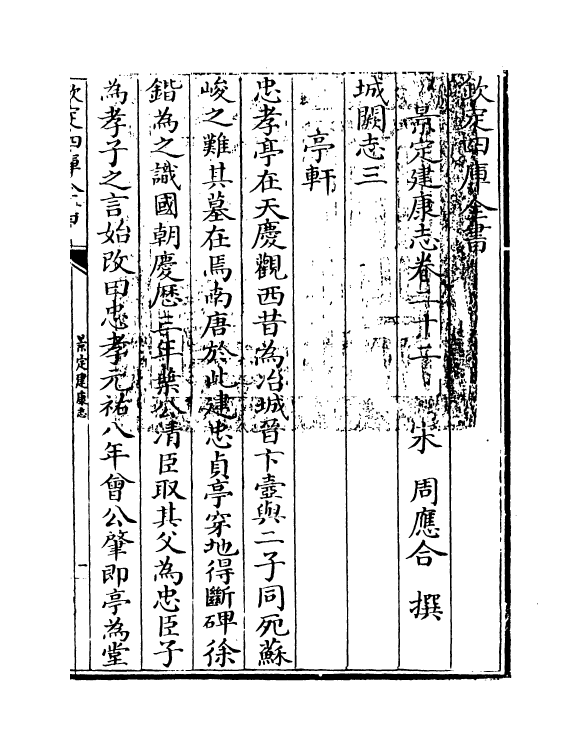 欽定四庫全書
景定建康志卷二十二
宋 周應合 撰
城闕志三
亭軒
忠孝亭在天慶觀西昔為冶城晉卞壼與二子同死蘇
峻之難其墓在焉南唐於此建忠貞亭穿地得斷碑徐
鍇為之識國朝慶厯三年葉公清臣取其父為忠臣子
為孝子之言始改曰忠孝元祐八年曾公肇即亭為堂
欽定四庫全書
景定建康志
一